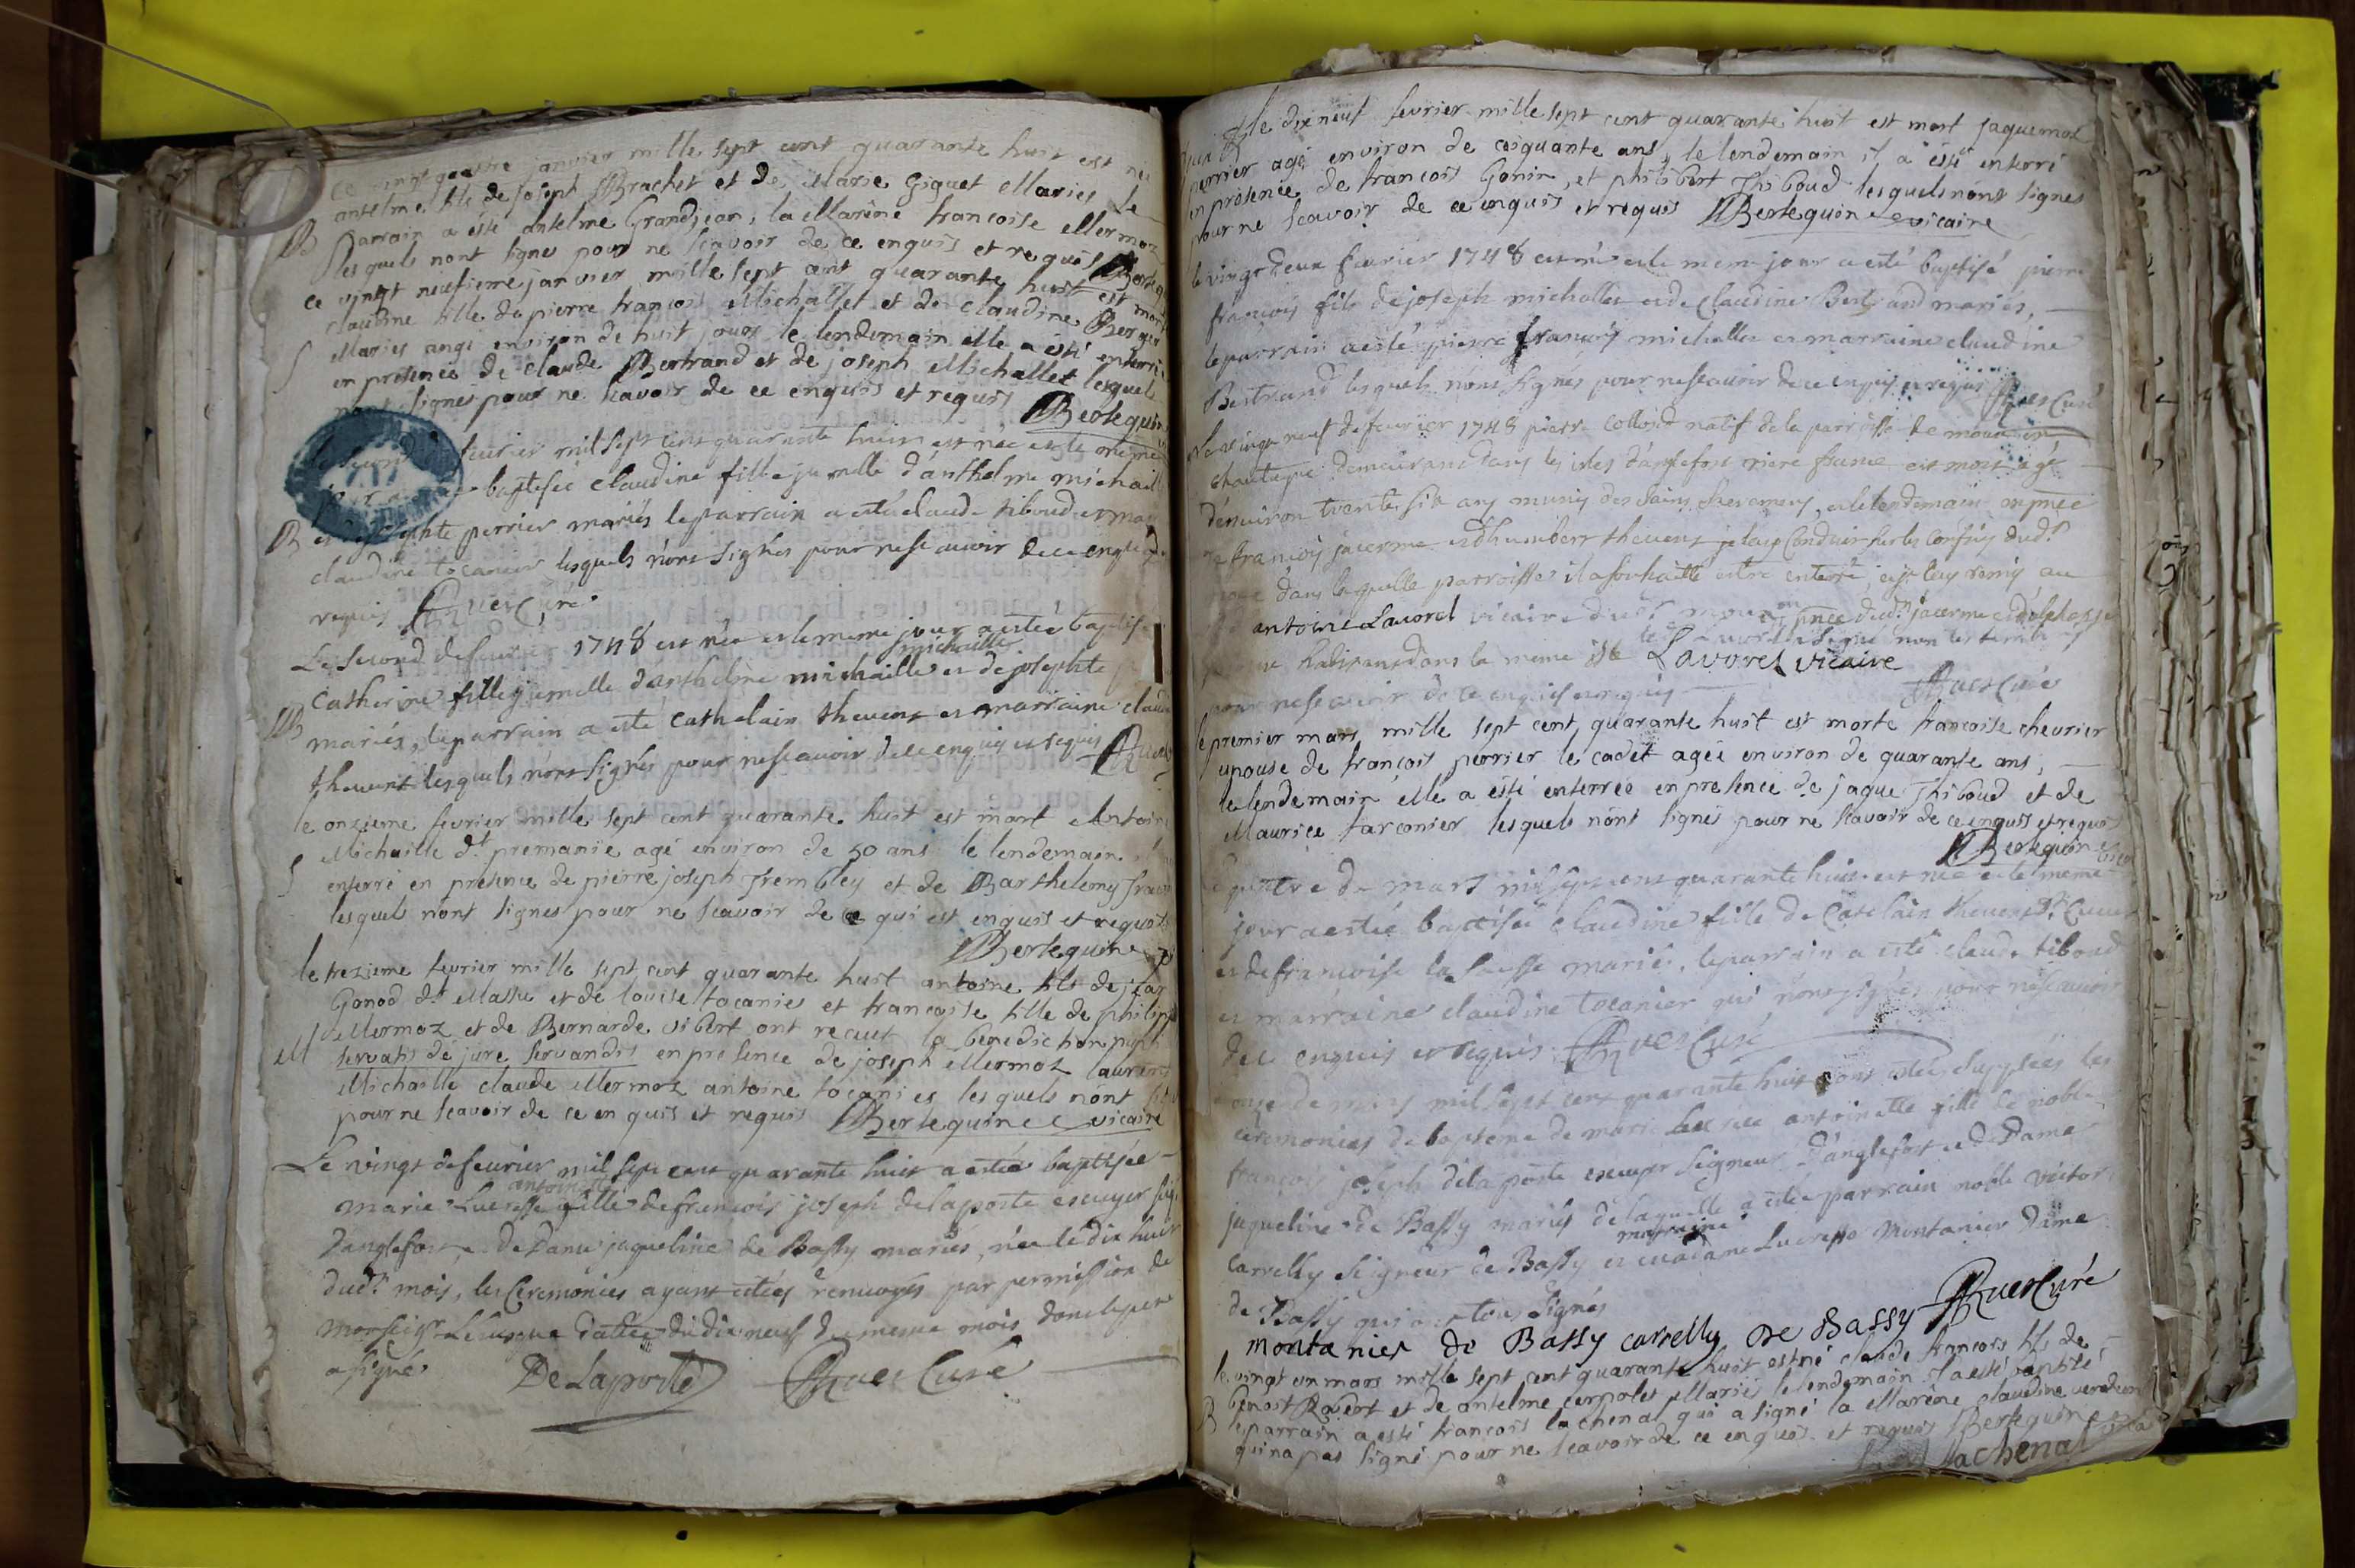 ce vingt quatre janvier mille sept cent quarante huit est né
antelme fils de joseph Brachet et de Marie Giguet Maries Le
B parrain a ésté antelme Grandjean, la Marêne francoise Mermoz
lesquels nont signes pour ne scavoir de ce enquis et requis
ce vingt neufieme janvier mille sept cent quarante huit est mort
claudine fille de pierre françois Michallet et de claudine
Maries angé environ de huit jours le lendemain elle a ésté enterré
S en présence de claude Bertrand et de joseph Michallet lesquels
nont signes pour ne scavoir de ce enquis et requis Berlequin
feurier mil sept cent quarante huit est née et le meme
baptisée claudine fille jumelle d'anthelme michaille
B perrier mariés le parrain a esté claude tiboud et
claudine tocanier lesquels n'ont signés pour ne scavoir de ce enquis
requis Curé
Le second de feurier 1748 est née et le meme jour a estée baptisée
Catherine fille jumelle d'anthelme michaille et de josephte michaille
B mariés, le parrain a esté cathelain thevent et marraine
thevent lesquels n'ont signés pour ne scavoir de ce enquis et requis
le onzieme fevrier mille sept cent quarante huit est mort Antoine
Michaille dt premanie agé environ de 50 ans le lendemain
S enterré en présence de pierre joseph Trembley et de Barthelemy
lesquels nont signes pour ne scavoir de ce qui est enquis et requis
Berlequin
le trezieme fevrier mille sept cent quarante huit antoine fils de jean
Gonod dt Massu et de louise tocanier et françoise fille de philippe
M Mermoz et de Bernarde vibert ont recut la benediction
servatis de jure servandis en présence de joseph Mermoz laurent
Michaille claude Mermoz antoine tocanier lesquels nont
pour ne scavoir de ce enquis et requis Berlequin vicaire
Le vingt de feurier mil sept cent quarante huit a estée baptisée
antoinette
marie Lucresse fille de francois joseph delaporte escuyer
d'anglefort et de Dame jaqueline de Bassy mariés, née le dix huit
dud. mois, les Ceremonies ayant estées renvoyés par permission de
monseigr. Leveque dattée du dix neuf du meme mois dont le pere
a signé De Laporte Curé
le dix neuf feurier mille sept cent quarante huit est mort jaquemoz
perrier agé environ de cinquante ans, le lendemain il a ésté enterré
en présence de francois Gonin, et philibert Thiboud lesquels nont signes
pour ne scavoir de ce enquis et requis Berlequin vicaire
le vingt deux feurier 1748 est né et le meme jour a esté baptisé pierre
françois fils de joseph michallet et de claudine Bertrand mariés,
le parrain a esté pierre françois michallet et marraine claudine
Bertrand lesquels n'ont signés pour ne scavoir de ce enquis et requis Curé
Le vingt neuf de feurier 1748 pierre Collond natif de la parroisse de
chautagne demeurant dans les isles d'anglefort riere france est mort agé
d'environ trente six ans muny des saints sacremens, et le lendemain en pnce
de françois jacerme et d'humbert thevent je lay conduit sur les confins dud.
dans laquelle parroisse il a souhaitté estre enterré, et je lay remis au
antoine Lavorel vicaire
habitans dans la meme isle Lavorel vicaire
pour ne scavoir de ce enquis et requis Curé
le premier mars mille sept cent quarante huit est morte francoise chevrier
epouse de françois perrier le cadet agée environ de quarante ans,
le lendemain elle a ésté enterrée en presence de jaque Thiboud et de
Maurice tarconier lesquels nont signés pour ne scavoir de ce enquis et requis
Berlequin
quatre de mars mil sept cent quarante huit est née et le meme
jour a estée baptisée claudine fille de Catelain thevent
et de francoise la mariés, le parrain a esté claude tiboud
et marraine claudine tocanier qui n'ont signés pour ne scavoir
de ce enquis et requis Curé
onze de mars mil sept cent quarante huit ont estées supplées les
ceremonies de bapteme de marie Lucrece antoinette fille de noble
francois joseph delaporte escuyer seigneur d'anglefort et de Dame
jaqueline de Bassy mariés de laquelle a estée parrain noble victor
marraine
Carrelly seigneur de Bassy et madame Lucresse Montanier Dame
de Bassy qui ont tous signés
montanier de Bassy carrelly De Bassy Curé
le vingt un mars mille sept cent quarante huit est né claude francois fils de
Benoit Robert et de antelme Maries le lendemain il a ésté baptisé
B le parrain a ésté francois lachenal qui a signé la Marêne claudine
qui na pas signé pour ne scavoir de ce enquis et requis Berlequin
lachenal